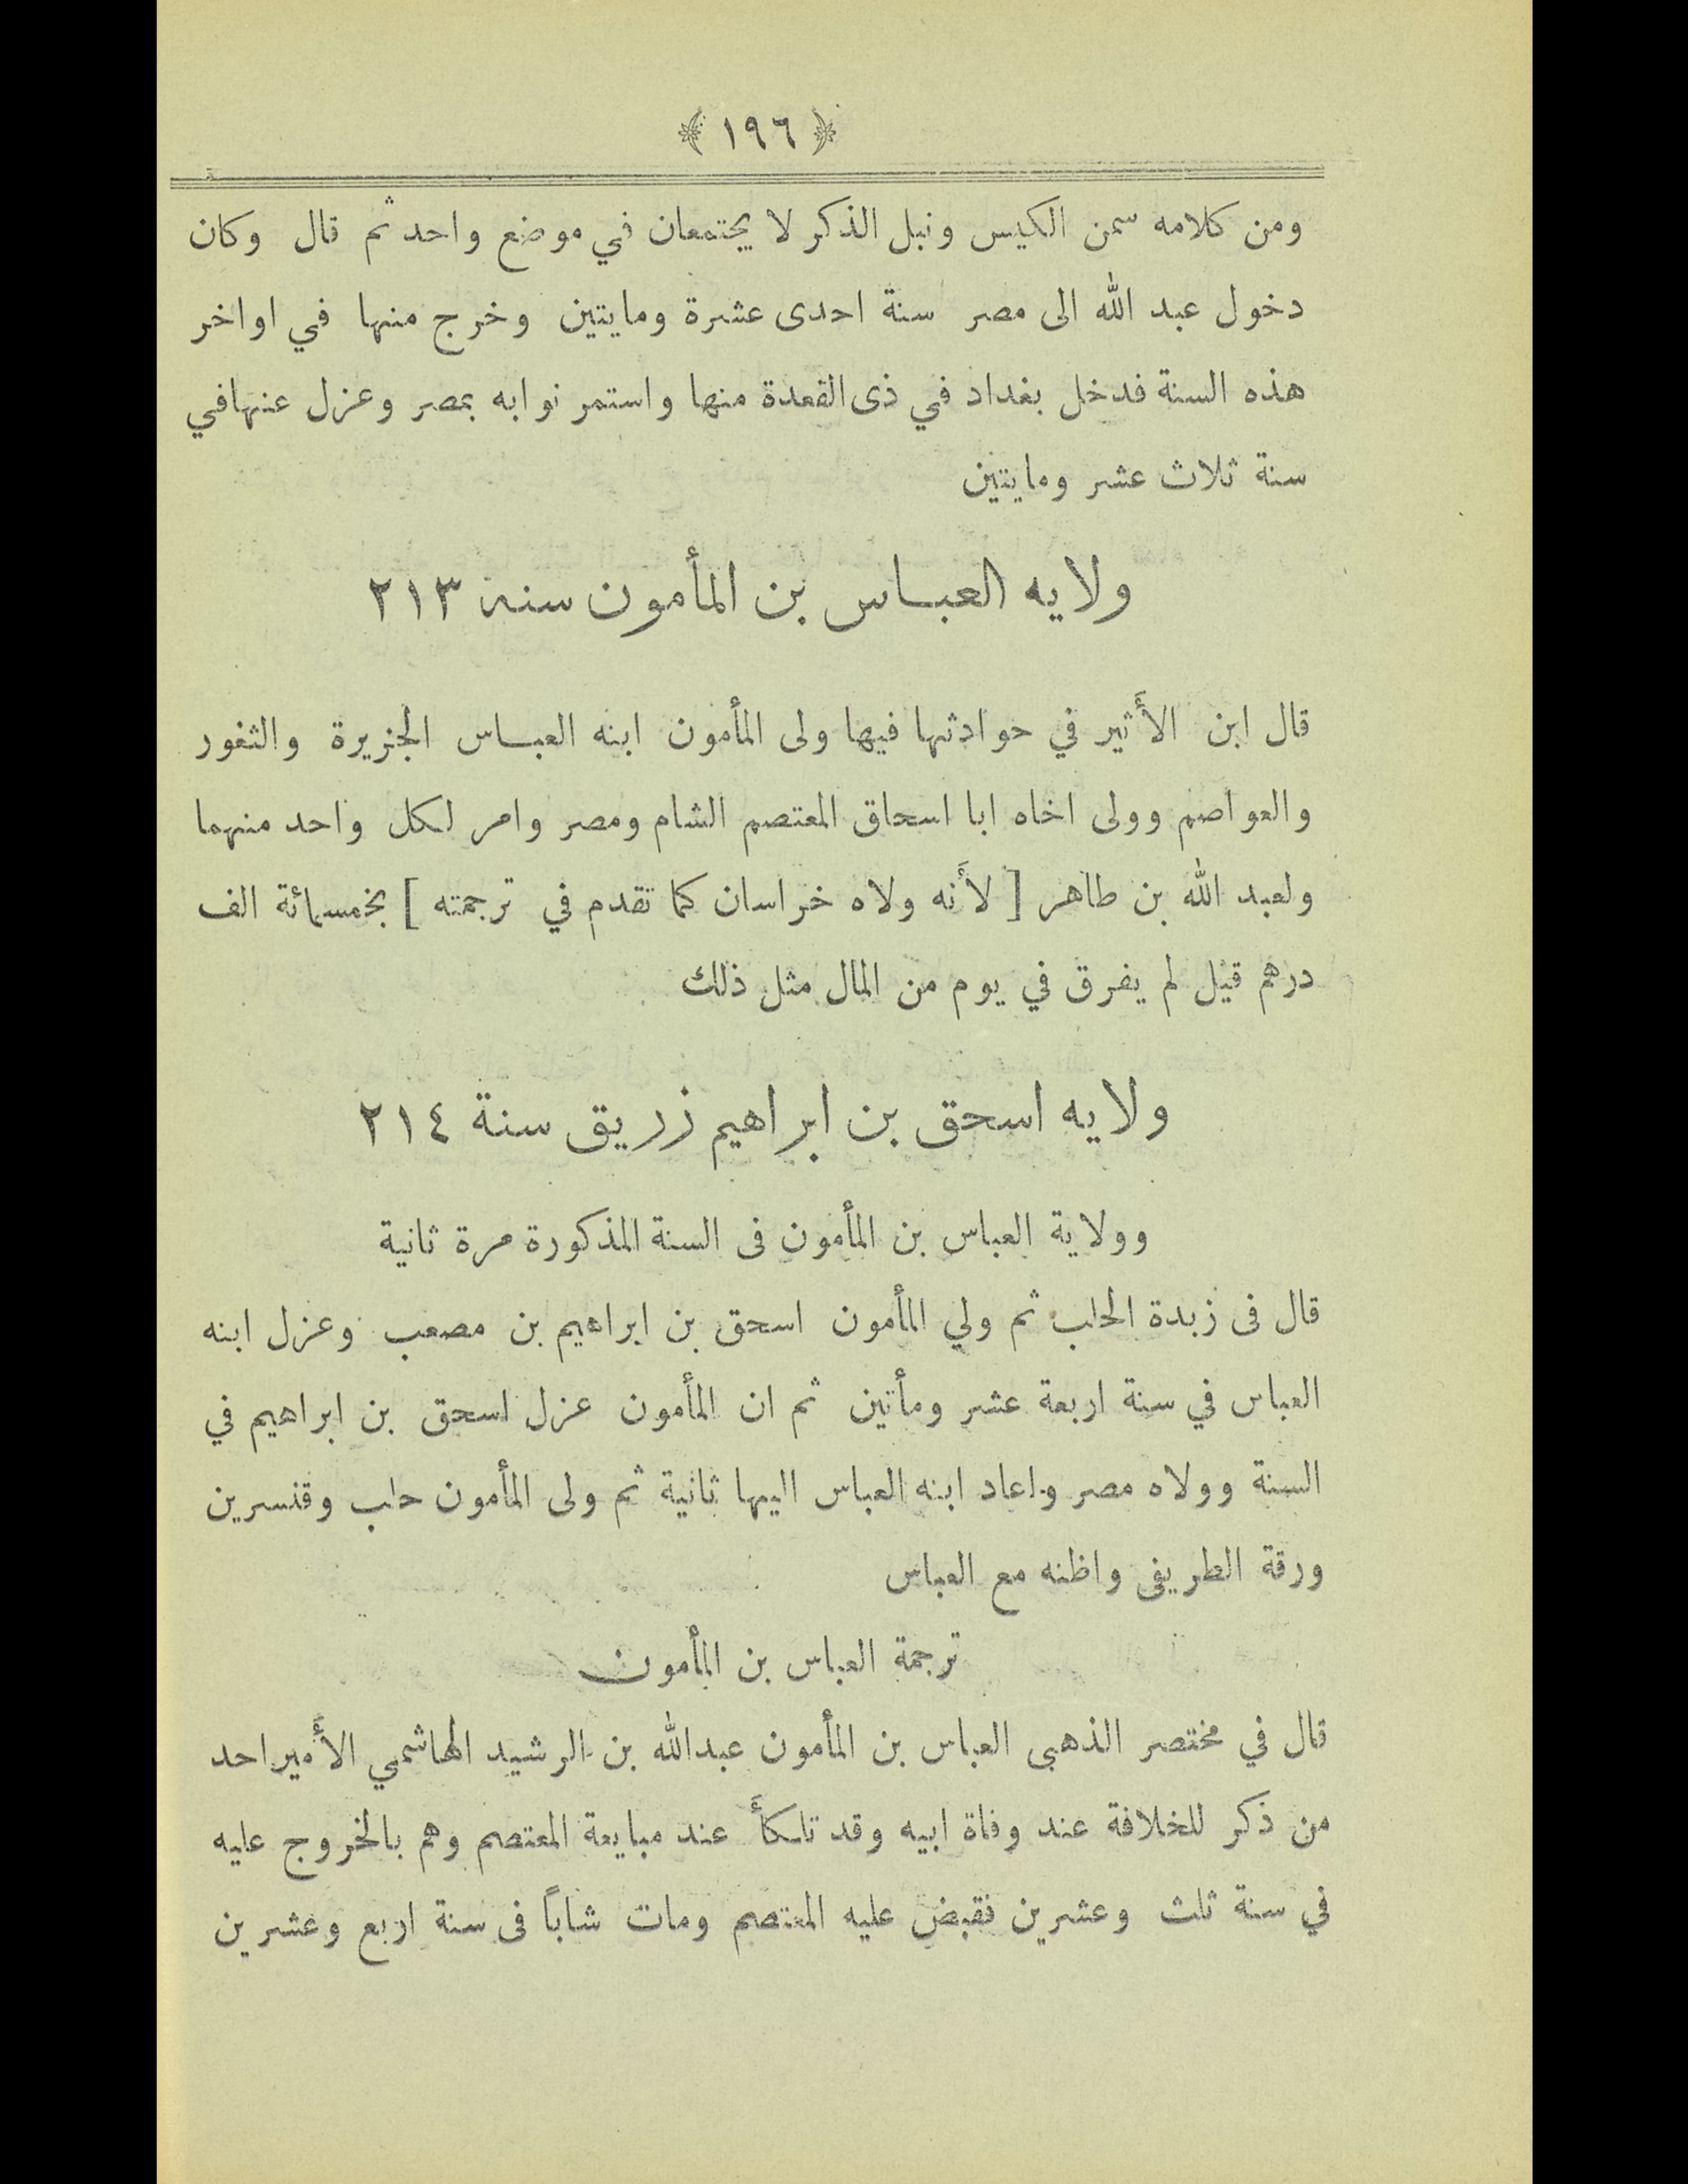 ﴿ ١٩٦ ﴾
ومن كلامه سمن الكيس ونبل الذكر لا يجتمعان في موضع واحد ثم قال وكان
دخول عبد الله الى مصر سنة احدى عشرة ومايتين وخرج منها في اواخر
هذه السنة فدخل بغداد في ذى القعدة منها واستمر نوابه بمصر وعزل عنها في
سنة ثلاث عشر ومايتين
ولايه العباس بن المأمون سنة ٢١٣
قال ابن الأثير في حوادثها فيها ولى المأمون ابنه العباس الجزيرة والثغور
والعواصم وولى اخاه ابا اسحاق المعتصم الشام ومصر وامر لكل واحد منهما
ولعبد الله بن طاهر [ لأنه ولاه خراسان كما تقدم في ترجمته ] بخمسمائة الف
درهم قيل لم يفرق في يوم من المال مثل ذلك
ولايه اسحق بن ابراهيم زريق سنة ٢١٤
وولاية العباس بن المأمون فى السنة المذكورة مرة ثانية
قال فى زبدة الحلب ثم ولي المأمون اسحق بن ابراهيم بن مصعب وعزل ابنه
العباس في سنة اربعة عشر ومأتين ثم ان المأمون عزل اسحق بن ابراهيم في
السنة وولاه مصر واعاد ابنه العباس اليها ثانية ثم ولى المأمون حلب وقنسرين
ورقة الطريفى واظنه مع العباس
ترجمة العباس بن المأمون
قال في مختصر الذهبى العباس بن المأمون عبدالله بن الرشيد الهاشمي الأمير احد
من ذكر للخلافة عند وفاة ابيه وقد تلكأ عند مبايعة المعتصم وهم بالخروج عليه
في سنة ثلث وعشرين فقبض عليه المعتصم ومات شاباً فى سنة اربع وعشرين